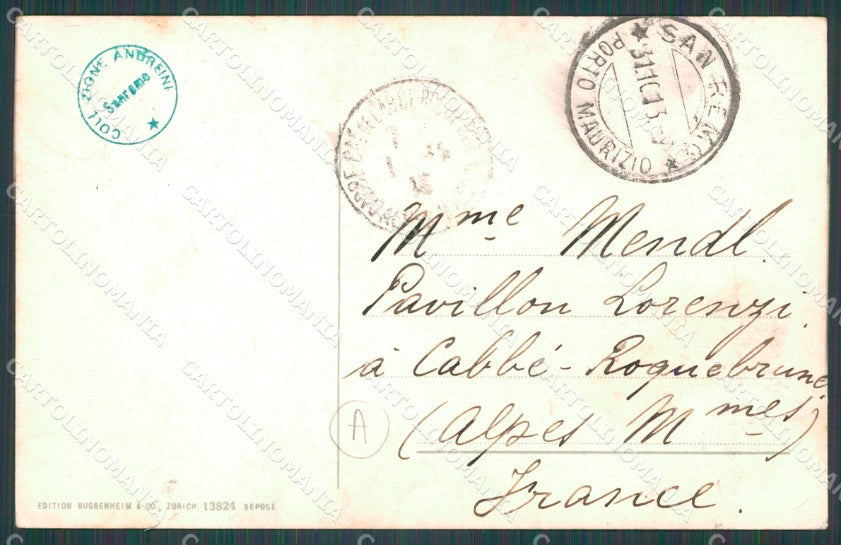 COLLEZIONE ANDREINI
Sanremo
SAN REMO
31.10.13
PORTO MAURIZIO
Mme Mendl.
Pavillon Lorenzi.
à Cabbé-Roquebrune
(Alpes Mmes)
France.
A
EDITION GUGGENHEIM & Co., ZÜRICH 13824 DEPOSÉ
CARTOLINOMANIA